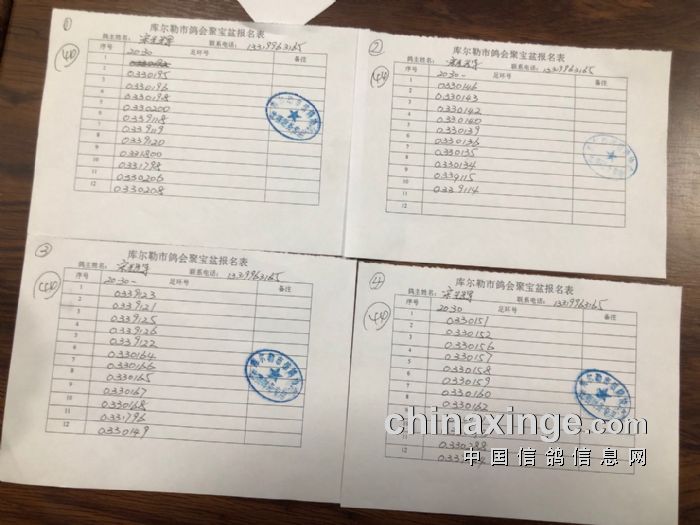 ①
库尔勒市鸽会聚宝盆报名表
鸽主姓名： 联系电话：13319963165
序号 2030 足环号 备注
1
2 0330195
3 0330196
4 0330198
5 0330200
6 0339118
7 0339119
8 0339120
9 0331800
10 0331798
11 0330206
12 0330208
②
库尔勒市鸽会聚宝盆报名表
鸽主姓名： 联系电话：13319963165
序号 2030- 足环号 备注
1 0330146
2 0330143
3 0330142
4 0330140
5 0330139
6 0330136
7 0330135
8 0330134
9 0339115
10 0339114
11
12
③
库尔勒市鸽会聚宝盆报名表
鸽主姓名： 联系电话：13319963165
序号 2030- 足环号 备注
1 0339123
2 0339121
3 0339125
4 0339126
5 0339122
6 0330164
7 0330166
8 0330165
9 0330167
10 0330168
11 0331796
12 0330149
4
库尔勒市鸽会聚宝盆报名表
鸽主姓名： 联系电话：13319963165
序号 2030 足环号 备注
1 0330151
2 0330152
3 0330156
4 0330157
5 0330158
6 0330159
7 0330160
8 0330162
12
chinaxinge.com
中国信鸽信息网